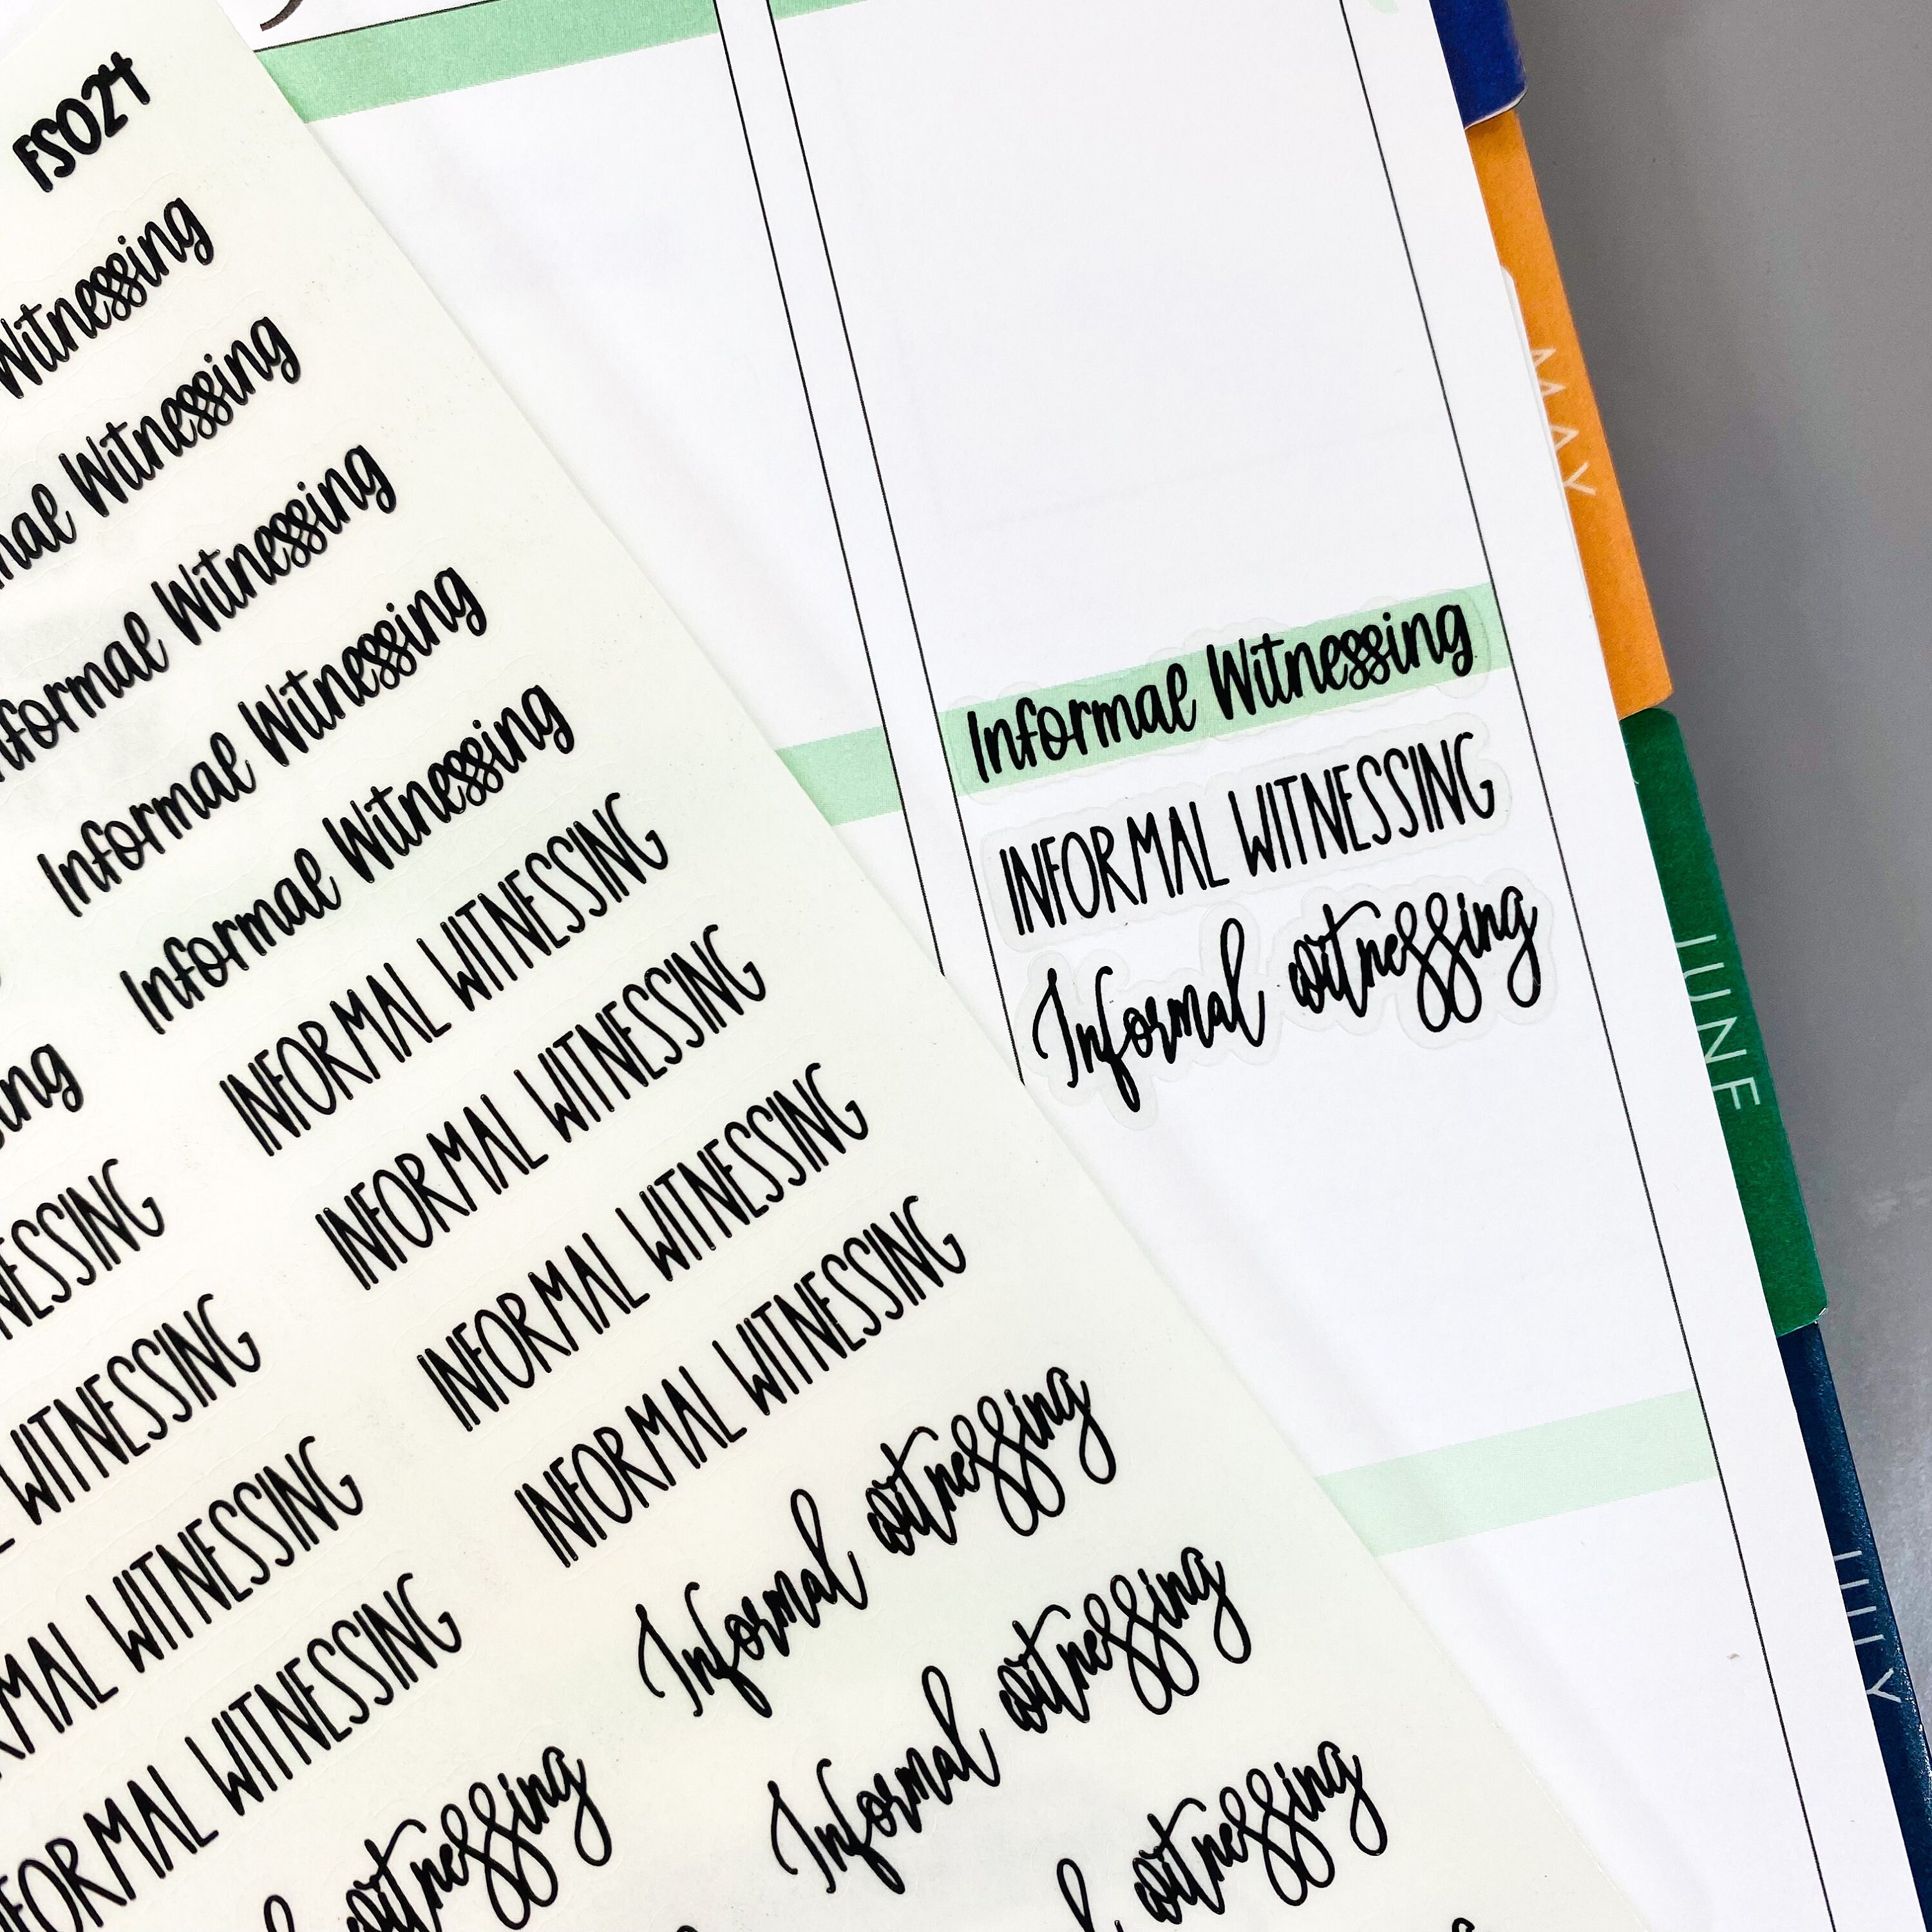 FS024
Witnessing
Witnessing
Informal Witnessing
Informal Witnessing
Informal Witnessing
INFORMAL WITNESSING
INFORMAL WITNESSING
INFORMAL WITNESSING
INFORMAL WITNESSING
Informal witnessing
Informal witnessing
witnessing
WITNESSING
WITNESSING
witnessing
Informal Witnessing
INFORMAL WITNESSING
Informal witnessing
MAY
JUNE
JULY